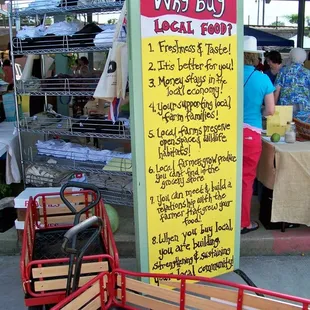 Why Buy
LOCAL FOOD?
1. Freshness & Taste!
2. It's better for you!
3. Money stays in the
local economy!
4. your supporting local
farm families!
5. Local farms preserve
open space & wildlife
habitats!
6. Local farmers grow produce
you can't find in the
grocery store
7. You can meet & build a
relationship with the
farmer that grew your
food!
8. When you buy local
you are building,
strengthening & sustaining
your local community!